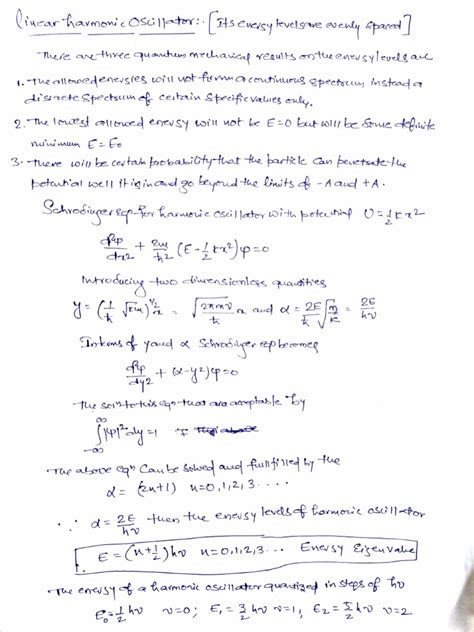 Linear harmonic Oscillator:- [Its energy levels are evenly spaced]
There are three quantum mechanical results on the energy levels are
1. The allowed energies will not form a continuous spectrum, instead a
discrete spectrum of certain specific values only.
2. The lowest allowed energy will not be E=0 but will be some definite
minimum E=E₀
3. There will be certain probability that the particle can penetrate the
potential well it is in and go beyond the limits of -A and +A.
Schrodinger eqn for harmonic oscillator with potential U=½kx²
d²ψ/dx² + 2m/ħ² (E-½kx²)ψ=0
Introducing two dimensionless quantities
y=(1/ħ √km)^½ x = √(2πmν/ħ) x and α = 2E/ħ √(m/k) = 2E/hν
In terms of y and α Schrodinger eqn becomes
d²ψ/dy² + (α-y²)ψ=0
The soln to this eqn that are acceptable by
∫₋∞^∞ |ψ|²dy=1
The above eqn can be solved and fullfilled by the
α = (2n+1) n=0,1,2,3....
∵ α=2E/hν then the energy levels of harmonic oscillator
E=(n+½)hν n=0,1,2,3... Energy Eigen value
The energy of a harmonic oscillator quantized in steps of hν
E₀=½hν ν=0; E₁=3/2 hν ν=1, E₂=5/2 hν ν=2